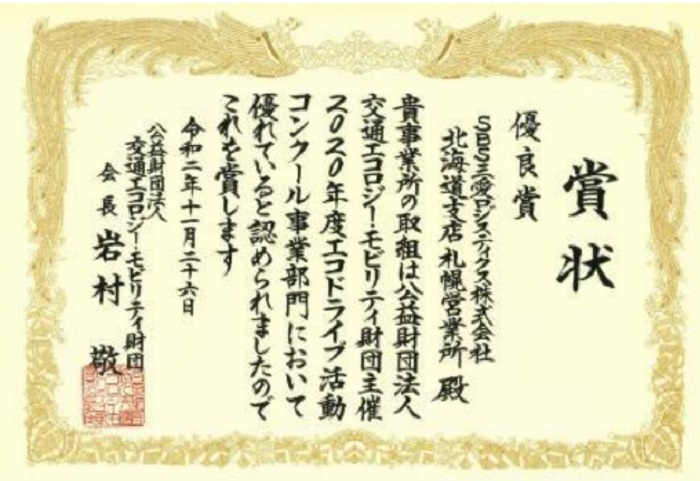 賞状
優良賞
SBS三愛ロジスティクス株式会社
北海道支店札幌営業所 殿
貴事業所の取組は公益財団法人
交通エコロジー・モビリティ財団主催
2020年度エコドライブ活動
コンクール事業部門において
優れていると認められましたので
これを賞します
令和二年十一月二十六日
公益財団法人
交通エコロジー・モビリティ財団
会長 岩村 敬